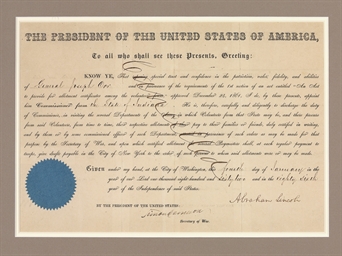 THE PRESIDENT OF THE UNITED STATES OF AMERICA,
To all who shall see these Presents, Greeting:
KNOW YE, That reposing special trust and confidence in the patriotism, valor, fidelity, and abilities
of Joseph in pursuance of the requirements of the 1st section of an act entitled "An Act
to provide for allotment certificates among the volunteer approved December 24, 1861, I do, by these presents, appoint
him Commissioner from the State of Indiana He is, therefore, carefully and diligently to discharge the duty
of Commissioner, in visiting the several Departments of the Army in which Volunteers from that State may be, and there procure
from said Volunteers, from time to time, their respective allotments of their pay to their families or friends, duly certified in writing,
and by them or by some commissioned officer of such Department, attested in pursuance of such orders as may be made for that
purpose by the Secretary of War, and upon which certified allotment the several Paymasters shall, at each regular payment to
troops, give drafts payable in the City of New York to the order of such persons to whom said allotments were or may be made.
GIVEN under my hand, at the City of Washington, this Tenth day of January in the
year of our Lord one thousand eight hundred and sixty two and in the eighty sixth
year of the Independence of said States.
Abraham Lincoln
BY THE PRESIDENT OF THE UNITED STATES:
Simon Cameron
Secretary of War.